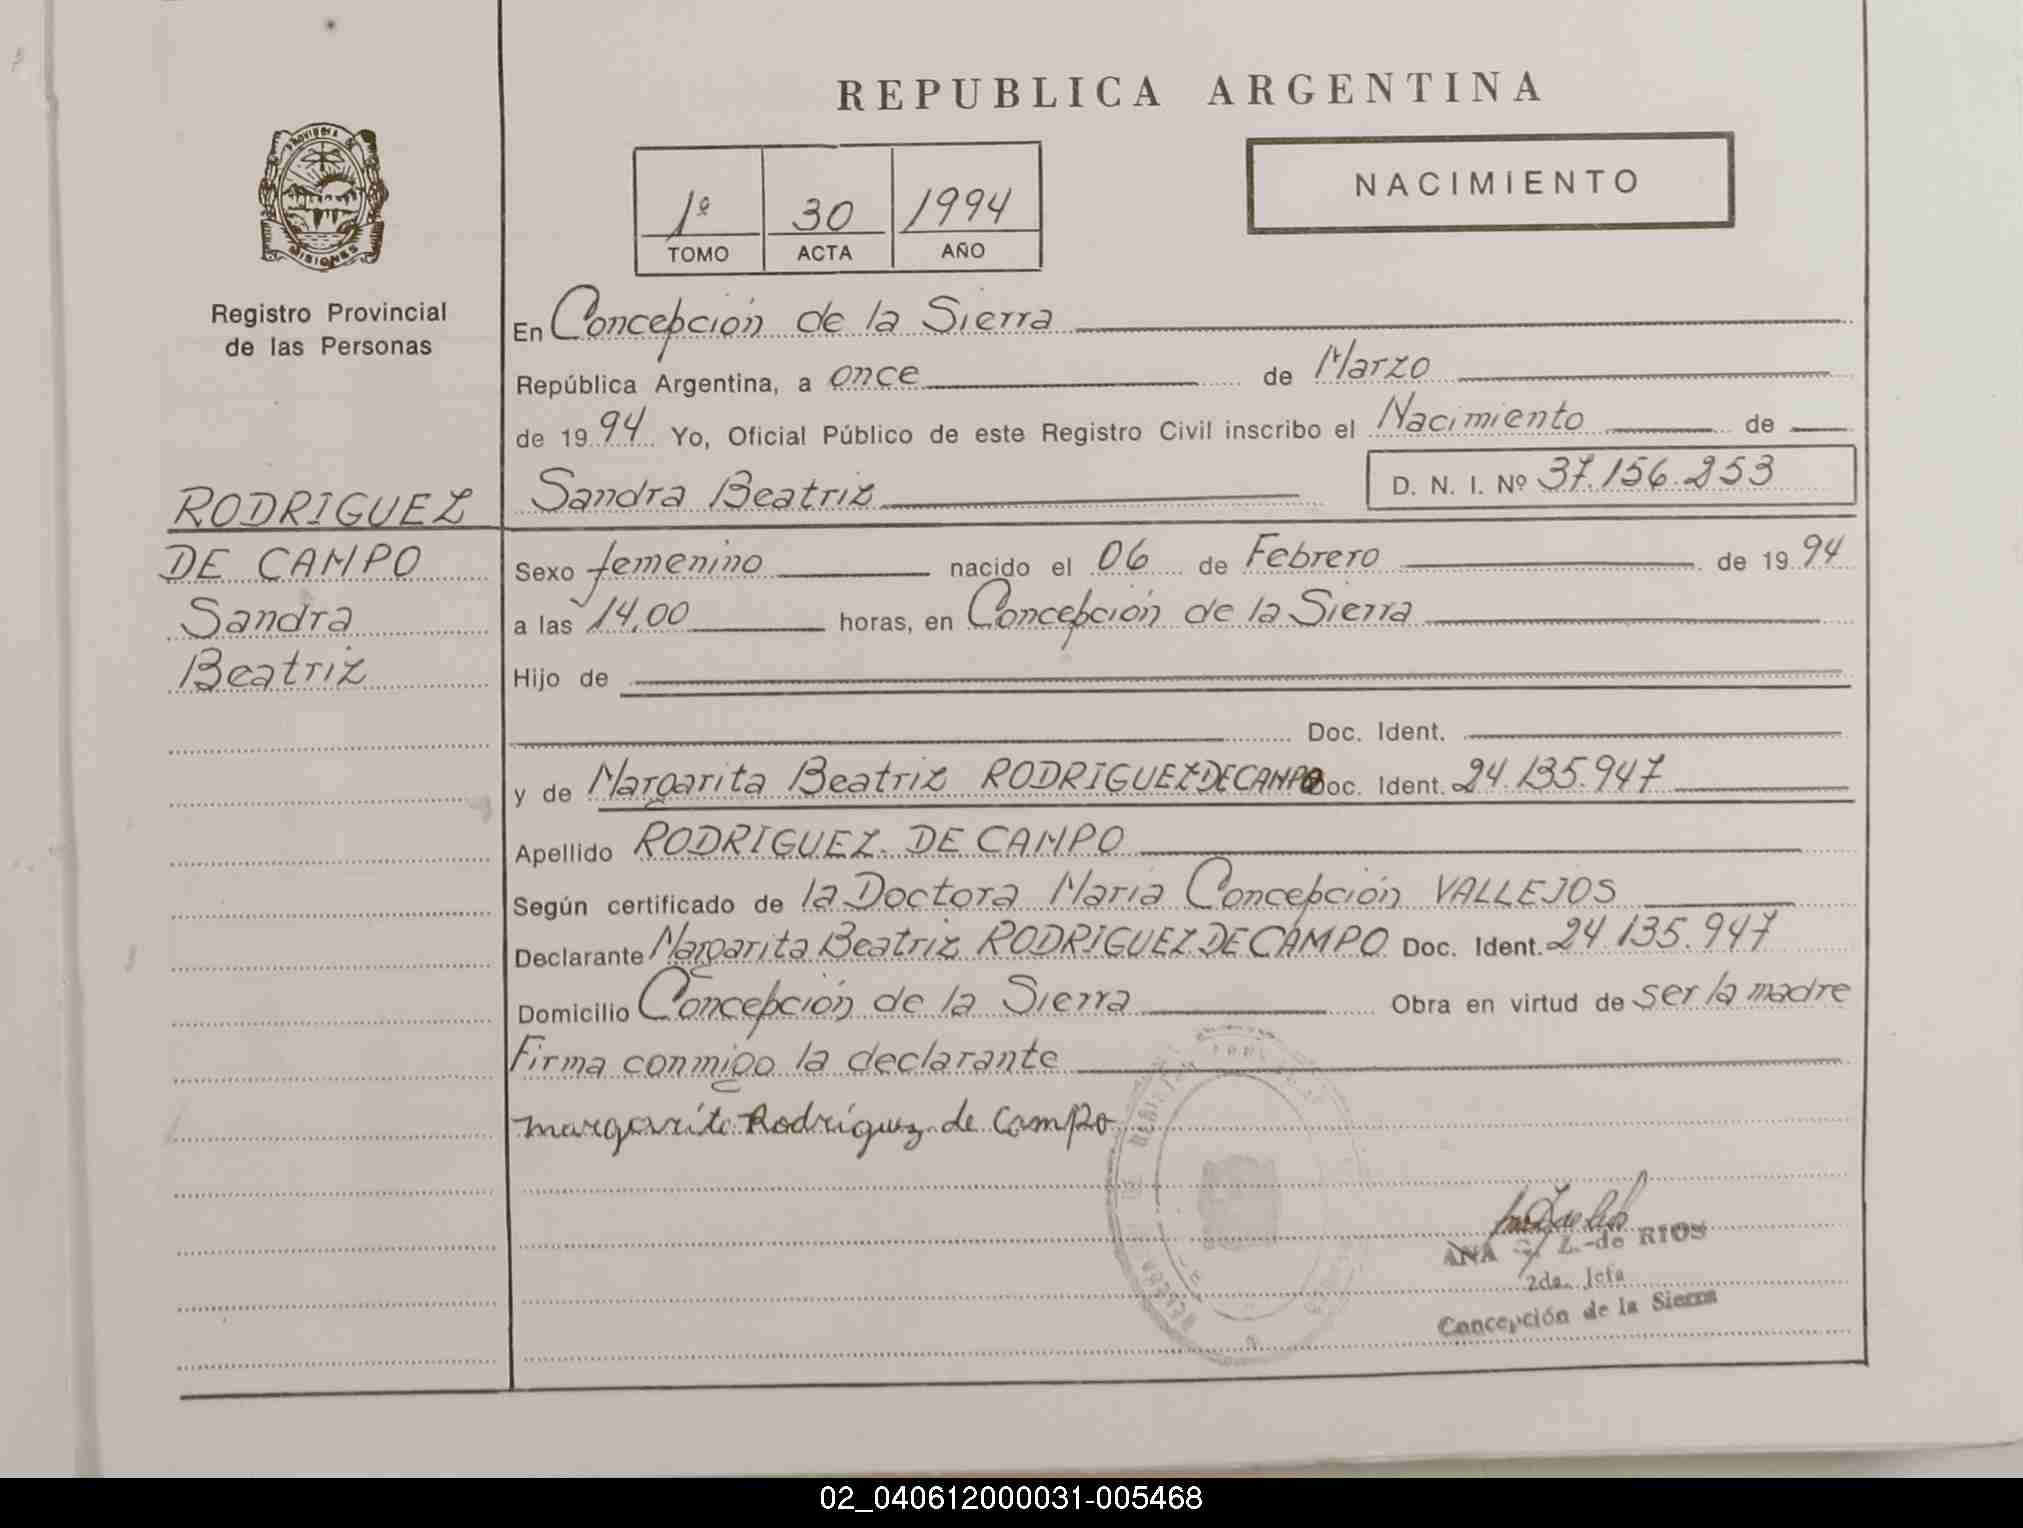 REPUBLICA ARGENTINA
PROVINCIA DE MISIONES
Registro Provincial
de las Personas
1º 30 1994
TOMO ACTA AÑO
NACIMIENTO
RODRIGUEZ
DE CAMPO
Sandra
Beatriz
En Concepción de la Sierra
República Argentina, a once de Marzo
de 19 94 Yo, Oficial Público de este Registro Civil inscribo el Nacimiento de
Sandra Beatriz D. N. I. Nº 37.156.253
Sexo femenino nacido el 06 de Febrero de 19 94
a las 14,00 horas, en Concepción de la Sierra
Hijo de
Doc. Ident.
y de Margarita Beatriz RODRIGUEZ DE CAMPO Doc. Ident. 24.135.947
Apellido RODRIGUEZ DE CAMPO
Según certificado de la Doctora María Concepción VALLEJOS
Declarante Margarita Beatriz RODRIGUEZ DE CAMPO Doc. Ident. 24.135.947
Domicilio Concepción de la Sierra Obra en virtud de ser la madre
Firma conmigo la declarante
margarita Rodríguez de Campo
ANA Z. de RIOS
2da. Jefa
Concepción de la Sierra
02_040612000031-005468